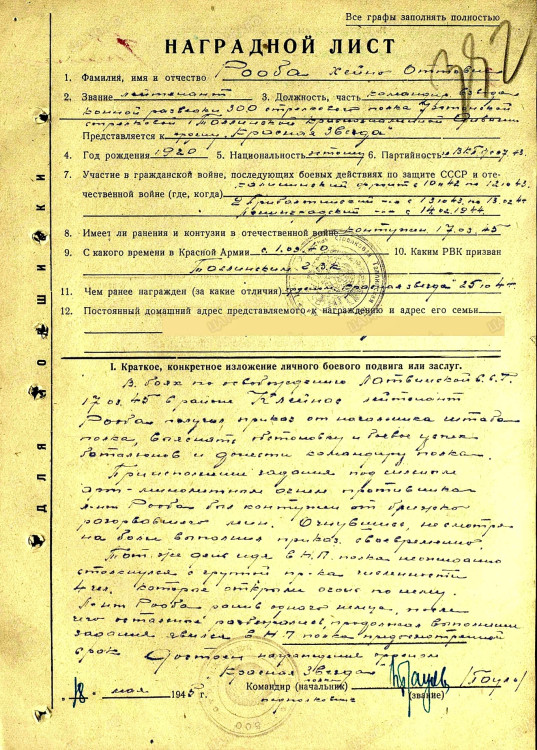 Все графы заполнять полностью
НАГРАДНОЙ ЛИСТ
1. Фамилия, имя и отчество Рооба Хейно Оттович
2. Звание лейтенант 3. Должность, часть командир взвода
конной разведки 300 стрелкового полка 7 Эстонской
стрелковой Таллинской Краснознаменной дивизии
Представляется к ордену "Красная Звезда"
4. Год рождения 1920 5. Национальность эстонец 6. Партийность ВКП(б)
7. Участие в гражданской войне, последующих боевых действиях по защите СССР и оте-
чественной войне (где, когда) Калининский фронт с 10.42 по 12.10.43
2 Прибалтийский с 13.10.43 по 13.02.44
Ленинградский с 14.02.1944.
8. Имеет ли ранения и контузии в отечественной войне контузия 17.03.45
9. С какого времени в Красной Армии с 1.09.40 10. Каким РВК призван
Таллинским
11. Чем ранее награжден (за какие отличия) орденом "Красная звезда" 25.10.44
12. Постоянный домашний адрес представляемого к награждению и адрес его семьи
ДЛЯ ПОДШИВКИ
I. Краткое, конкретное изложение личного боевого подвига или заслуг.
В боях по освобождению Латвийской С.С.Р.
17.03.45 в районе Клейнас лейтенант
Рооба получил приказ от начальника штаба
полка, выяснять обстановку и боевые успехи
батальонов и донести командиру полка.
При исполнении задания под сильном
арт-минометным огнем противника
л-нт Рооба был контужен от близко
разорвавшего мины. Очнувшись, несмотря
на боли выполнил приказ своевременно.
Тот-же день идя в Н.П. полка неожиданно
столкнулся с группой пр-ка численностью
4 чел. которые открыли огонь по нему.
Л-нт Рооба ранив одного немца, после
чего остальные разбежались, продолжал выполнение
задания явился в НП полка предусмотренный
срок. Достоин награждения орденом
Красная Звезда
18 мая 1945 г. Командир (начальник) полка
подполковник (звание) (Пауль)